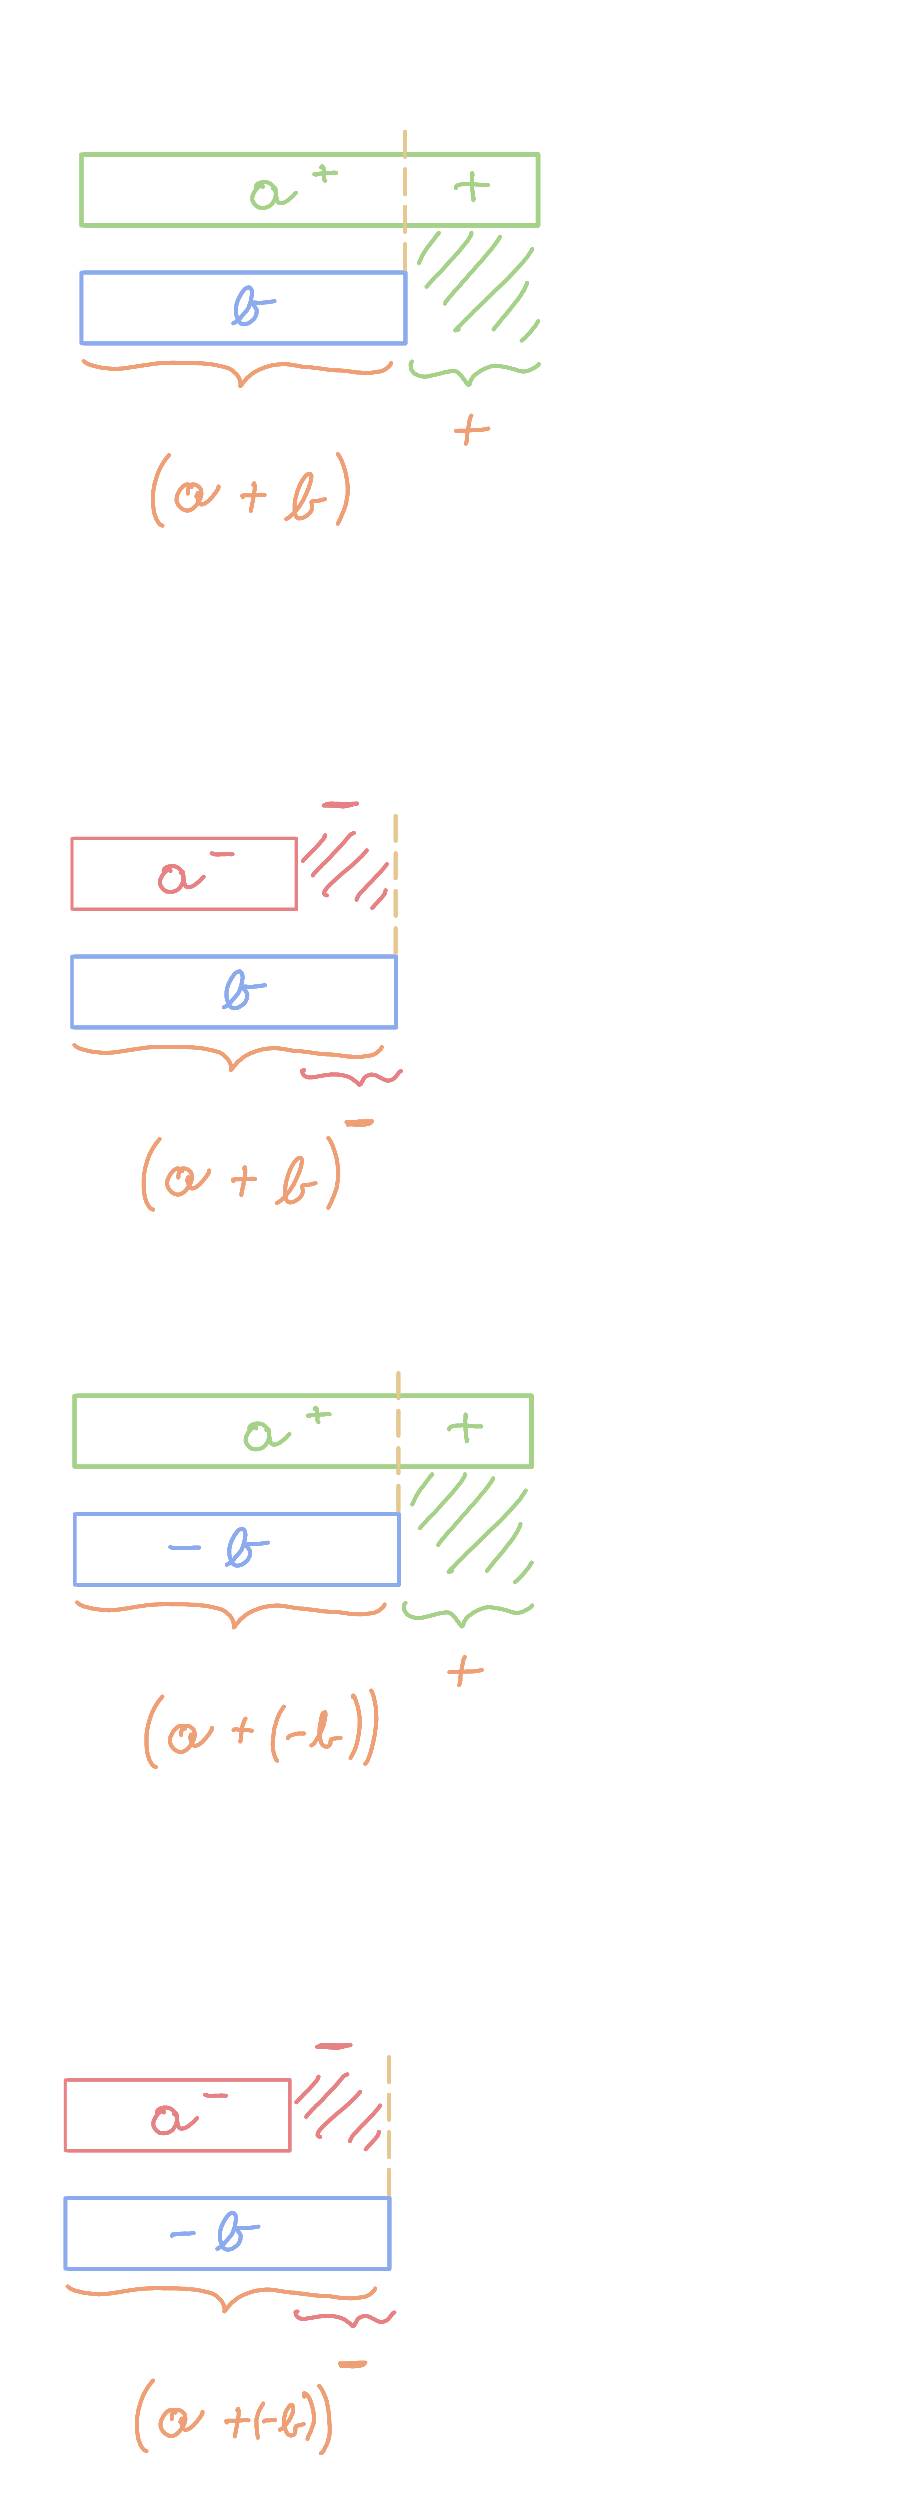 a⁺ +
b
+
(a + b)
−
a⁻
b
(a + b)⁻
a⁺ +
− b
+
(a + (-b))
−
a⁻
- b
(a +(-b))⁻